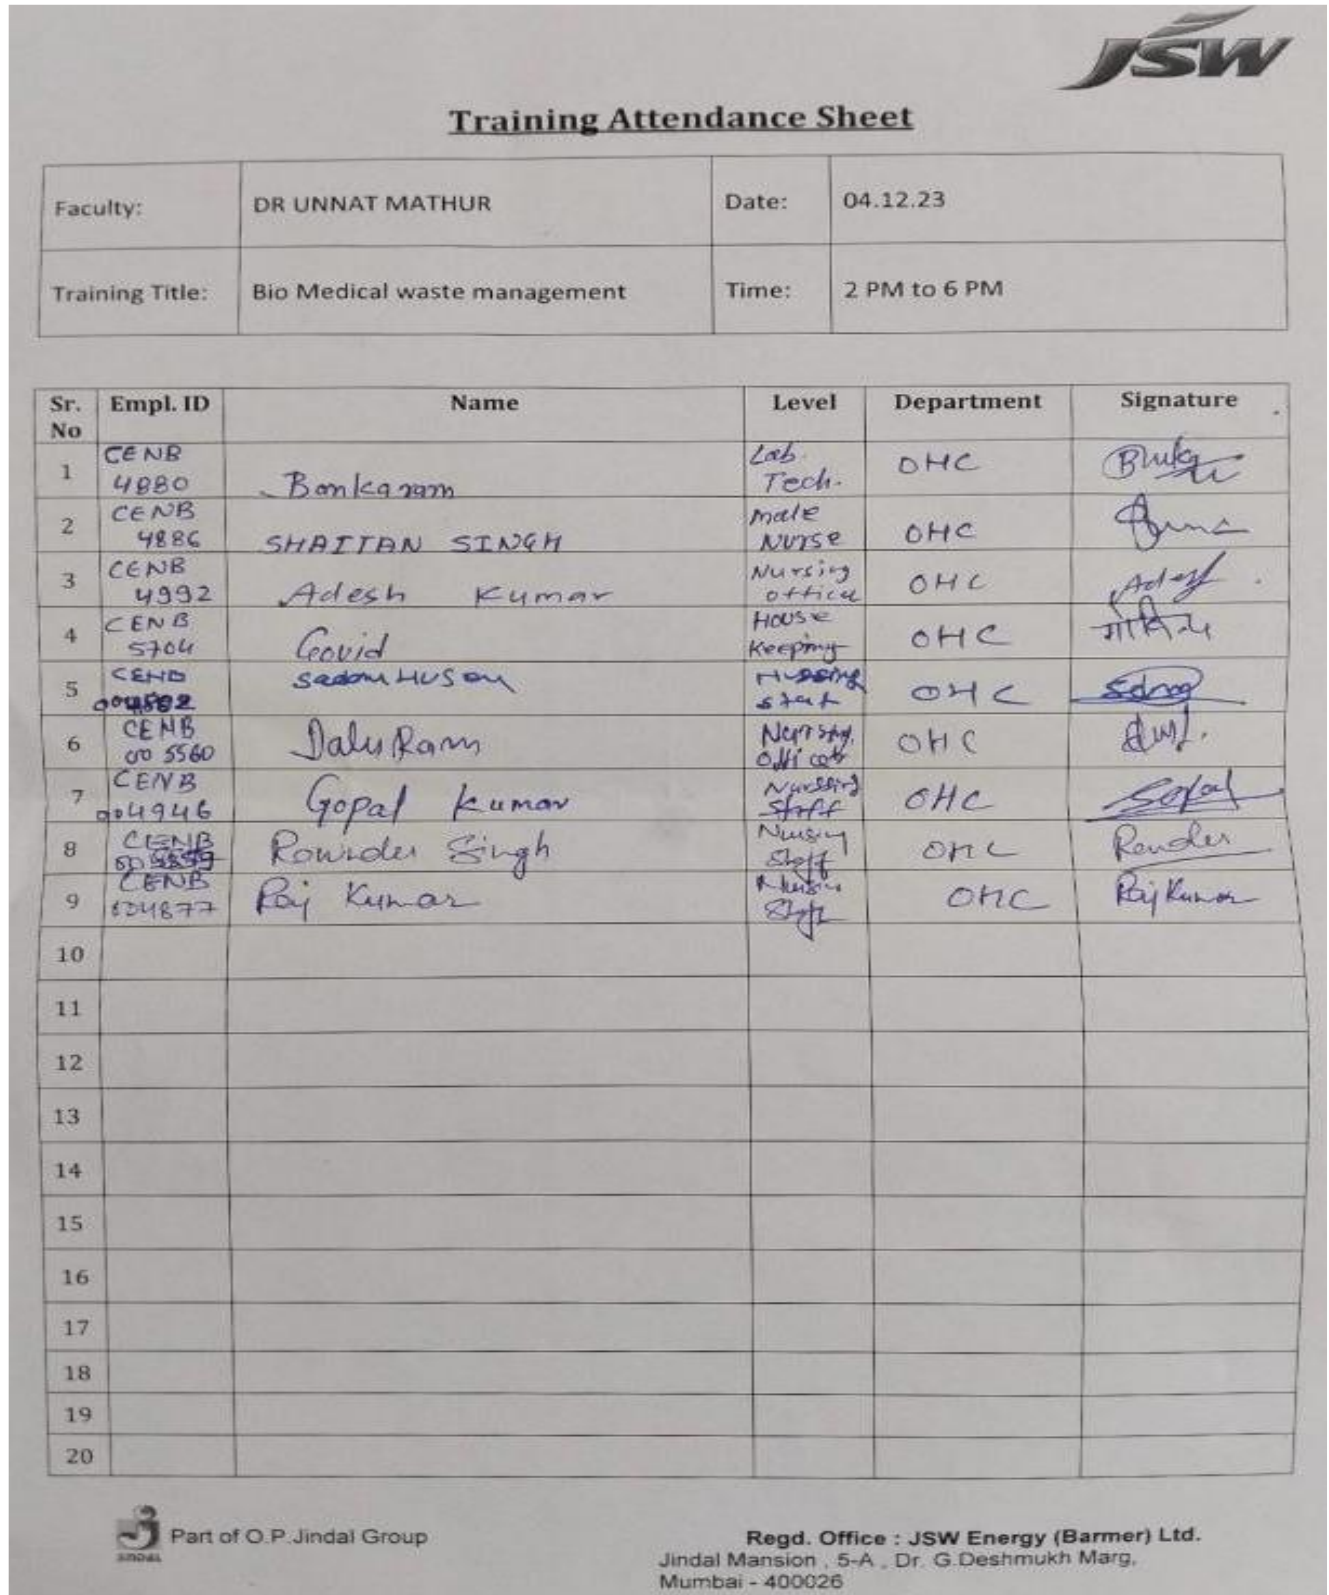 JSW
Training Attendance Sheet
Faculty: DR UNNAT MATHUR Date: 04.12.23
Training Title: Bio Medical waste management Time: 2 PM to 6 PM
Sr. No Empl. ID Name Level Department Signature
1 CENB 4880 Bonkaram Lab. Tech. OHC
2 CENB 4886 SHAITAN SINGH male Nurse OHC
3 CENB 4992 Adesh Kumar Nursing office OHC Adesh
4 CENB 5704 Govid House Keeping OHC गोविन्द
5 CENB Sadam Huson Nursing staf OHC
6 CENB 005560 Dalu Ram Nursing OHC
7 CENB 004946 Gopal Kumar Nurssing Staff OHC Gopal
8 CENB Singh Nursing Staff OHC
9 CENB 004877 Raj Kumar Nursing Staff OHC Raj Kumar
10
11
12
13
14
15
16
17
18
19
20
JINDAL Part of O.P.Jindal Group
Regd. Office : JSW Energy (Barmer) Ltd.
Jindal Mansion , 5-A , Dr. G.Deshmukh Marg,
Mumbai - 400026